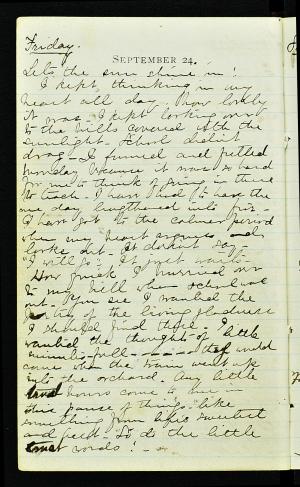 Friday.
SEPTEMBER 24.
Let the sun shine in!
I kept thinking in my
heart all day. How lovely
it was. I kept looking over
to the hills covered with the
sunlight. School didn't
drag - I fumed and fretted
because it was so hard
for me to think of being in there
to teach. I have had to have the
day lengthened into five
I have got to the calmer period
when my heart agonies and
looks out. It doesn't say -
"I will go." It just waits -
How quick I hurried over
to my hill when school was
out. You see I wanted the
of the living gladness
I should find there. I
wanted the thought of little
that would
come when the train went up
into the orchard. Any little
hours come to
this sense of things - like
something from life's sweetest
and best - So do the little
words! -